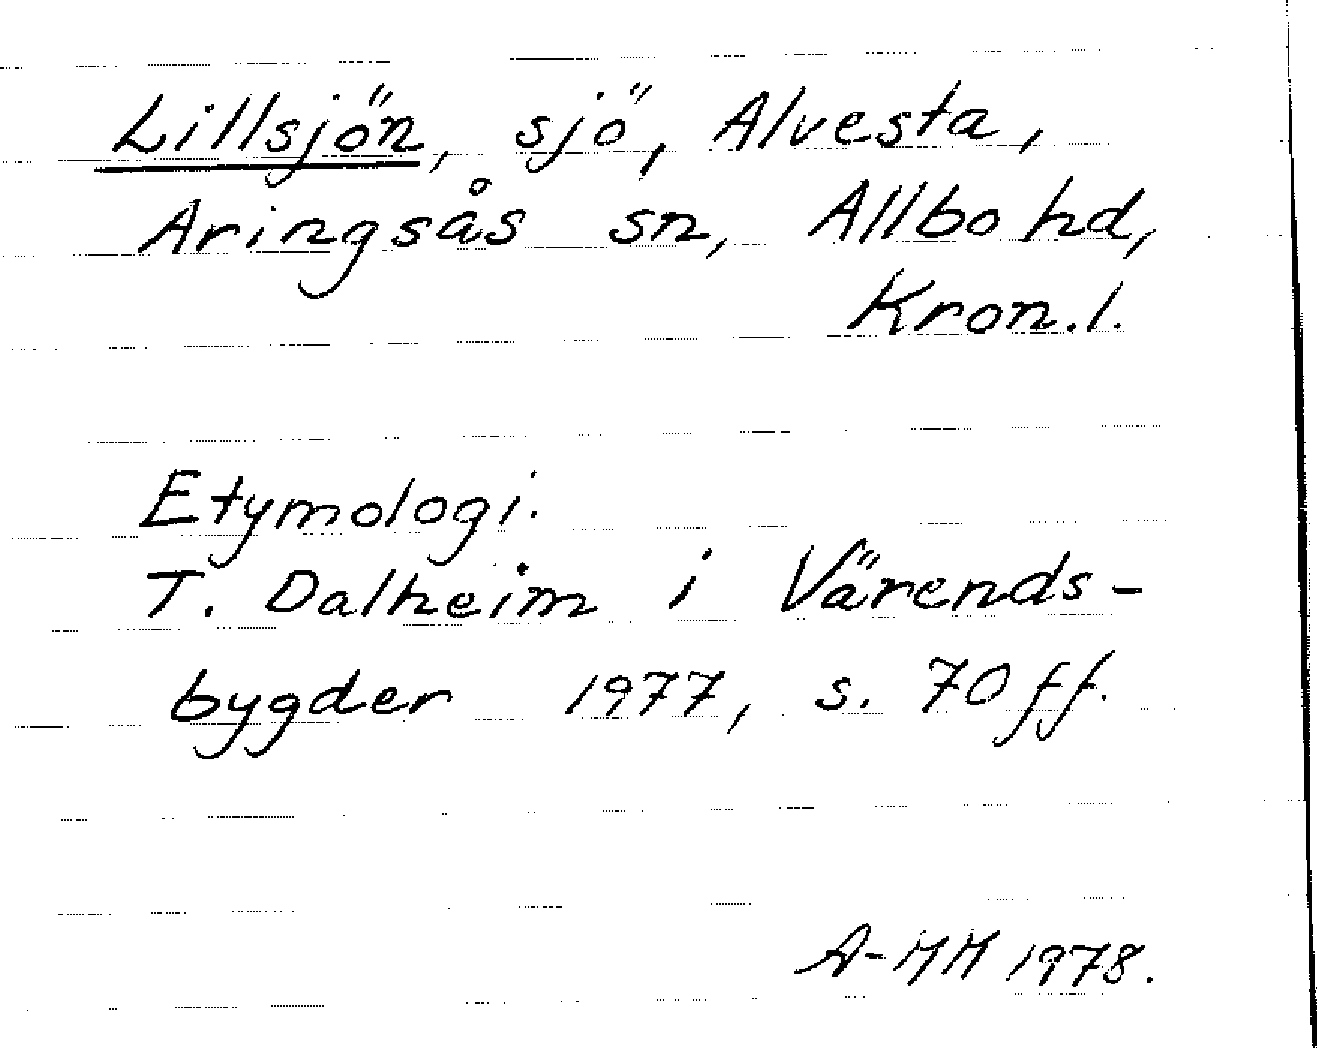 Lillsjön, sjö, Alvesta,
Aringsås sn, Allbo hd,
Kron.l.
Etymologi.
T. Dalheim i Värends-
bygder 1977, s. 70 ff.
A-MM 1978.